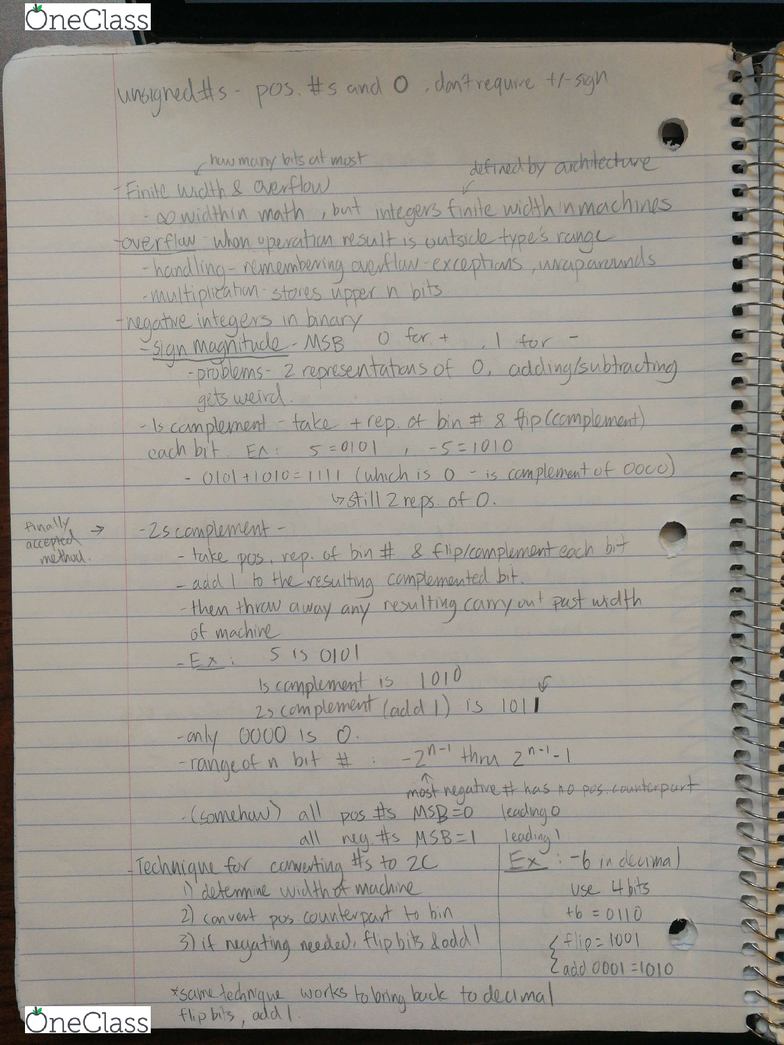 OneClass
unsigned #s - pos. #s and 0, don't require +/- sign
how many bits at most
defined by architecture
- Finite width & overflow
- ∞ width in math, but integers finite width in machines
- overflow - when operation result is outside type's range
- handling - remembering overflow - exceptions, wraparounds
- multiplication - stores upper n bits
- negative integers in binary
- sign magnitude - MSB 0 for +, 1 for -
- problems - 2 representations of 0, adding/subtracting
gets weird.
- 1s complement - take + rep. of bin # & flip (complement)
each bit. Ex: 5 = 0101, -5 = 1010
- 0101 + 1010 = 1111 (which is 0 - 1s complement of 0000)
↳ still 2 reps. of 0.
finally
accepted
method. →
- 2s complement -
- take pos. rep. of bin # & flip/complement each bit
- add 1 to the resulting complemented bit.
- then throw away any resulting carry out past width
of machine
- Ex: 5 is 0101
1s complement is 1010
2s complement (add 1) is 1011
- only 0000 is 0.
- range of n bit #: -2^n-1 thru 2^n-1 - 1
most negative # has no pos. counterpart
- (somehow) all pos #s MSB=0 leading 0
all neg. #s MSB=1 leading 1
- Technique for converting #s to 2C
1) determine width of machine
2) convert pos. counterpart to bin
3) if negating needed, flip bits & add 1
Ex: -6 in decimal
use 4 bits
+6 = 0110
flip = 1001
add 0001 = 1010
*same technique works to bring back to decimal
flip bits, add 1.
OneClass